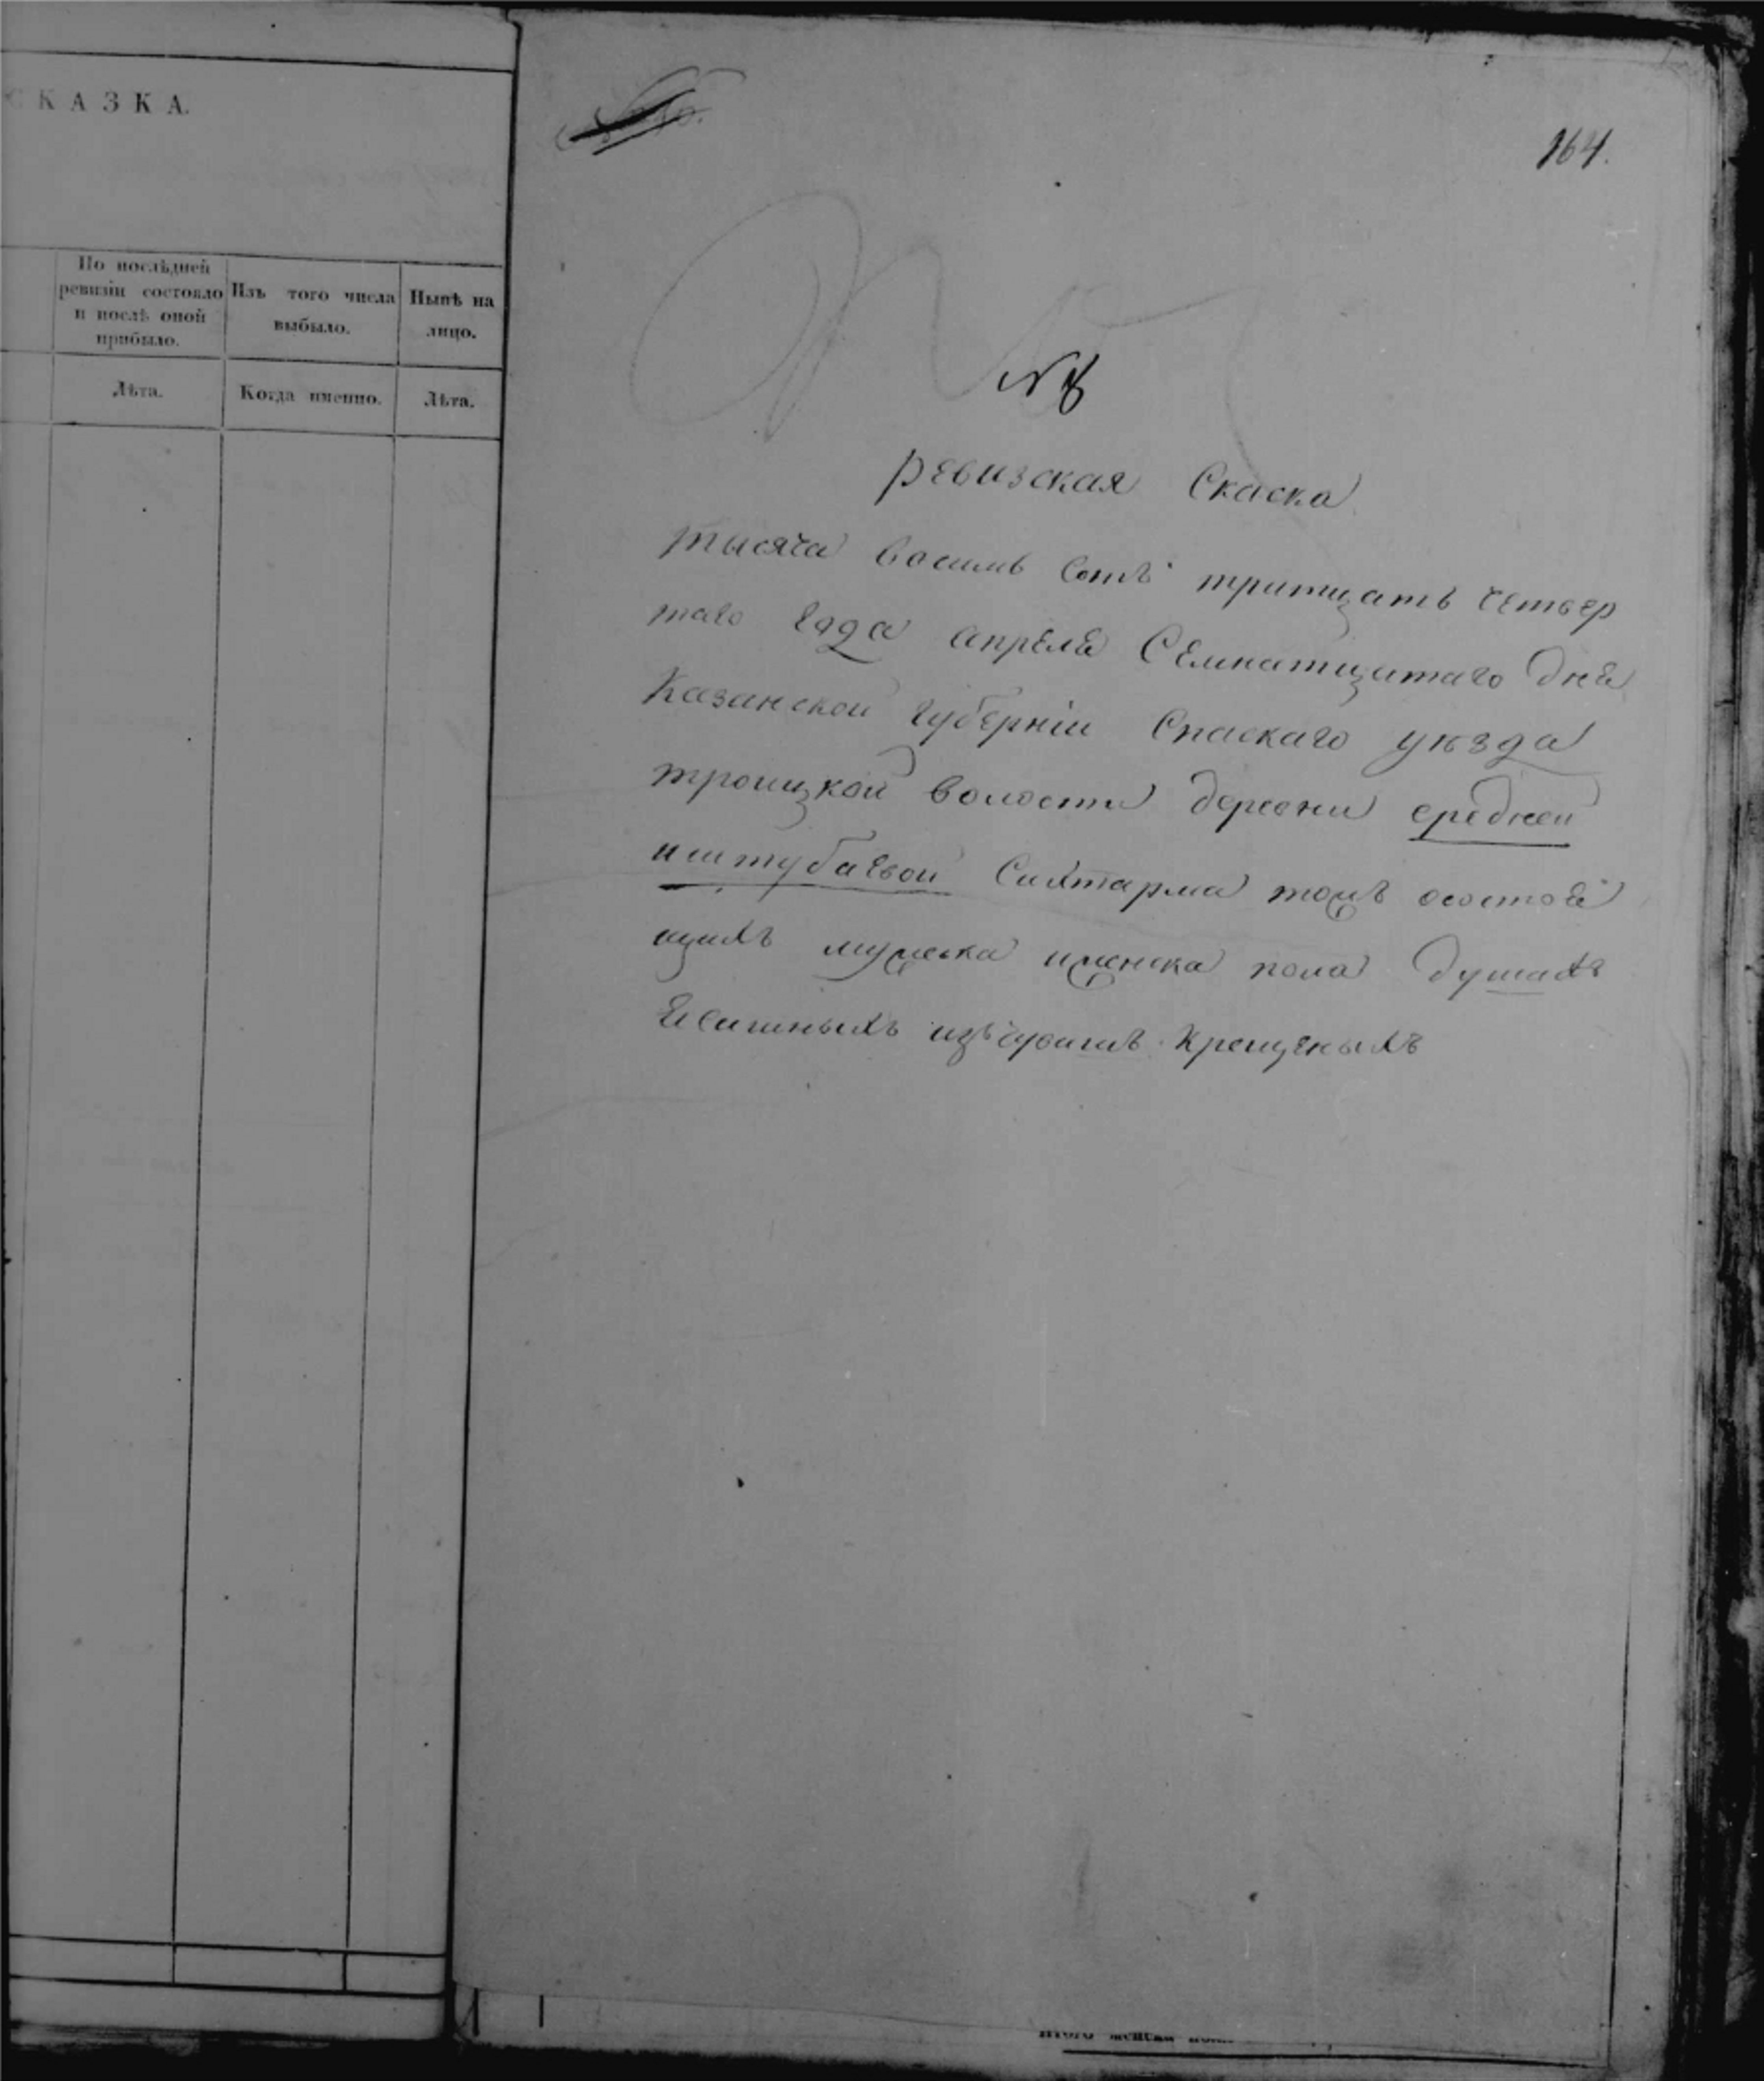 СКАЗКА.
По послѣдней
ревизіи состояло
и послѣ оной
прибыло.
Изъ того числа
выбыло.
Нынѣ на
лицо.
Лѣта.
Когда именно.
Лѣта.
164.
№ 8
ревизская Скаска
тысяча восимь сотъ тритцать четвер
таго года апреля Семнатцатаго дня
Казанской губерніи Спаскаго уѣзда
троицкой волости деревни средней
иштубаевой Сихтарма тожъ осостоя
щихъ мужеска иженска пола душахъ
Ясашныхъ изъчувашъ крещеныхъ